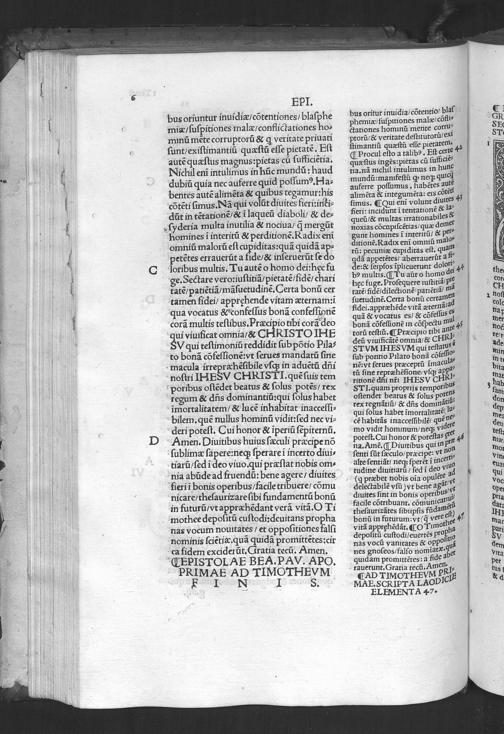 EPI.
bus oriuntur inuidiæ/cōtentiones/blasphe
miæ/suspitiones malæ/conflictationes ho
minū mēte corruptorū & q̃ veritate priuati
sunt/existimantiū quæstū esse pietatē. Est
autē quæstus magnus: pietas cū sufficiētia.
Nichil eni intulimus in hūc mundū: haud
dubiū quia nec auferre quid possumꝰ. Ha-
bentes autē alimēta & quibus tegamur: his
cōtēti simus. Nā qui volūt diuites fieri: inci-
dūt in tētationē/& ī laqueū diaboli/& de-
syderia multa inutilia & nociua/
homines ī interitū & perditionē. Radix eni
omniū malorū est cupiditas: quā quidā ap-
petētes errauerūt a fide/& inseruerūt se do
C loribus multis. Tu autē o homo dei: hęc fu
ge. Sectare vero iustitiā/pietatē/fidē/chari
tatē/patiētiā/māsuetudinē. Certa bonū cer
tamen fidei/apprehende vitam æternam: ī
qua vocatus & confessus bonā confessionē
corā multis testibus. Præcipio tibi corā deo
qui viuificat omnia/& CHRISTO IHE
SV qui testimoniū reddidit sub pōtio Pila
to bonā cōfessionē: vt serues mandatū sine
macula irreprehēsibile vsq; in aduētū dñi
nostri IHESV CHRISTI. quē suis tem
poribus ostēdet beatus & solus potēs/rex
regum & dñs dominantiū: qui solus habet
imortalitatem/& lucē inhabitat inaccessi-
bilem. quē nullus hominū vidit: sed nec vi-
deri potest. Cui honor & iperiū sēpiternū.
D Amen. Diuitibus huius sæculi præcipe nō
sublimæ sapere: neq; sperare i incerto diui-
tiarū/sed i deo viuo. qui præstat nobis om-
nia abūde ad fruendū: bene agere/diuites
fieri i bonis operibus/facile tribuere/cōmu
nicare/thesaurizare sibi fundamētū bonū
in futurū/vt appræhādant verā vitā. O Ti
mothee depositū custodi: deuitans propha
nas vocum nouitates/et oppositiones falsi
nominis sciētiæ. quā quidā promittētes: cir
ca fidem exciderūt. Gratia tecū. Amen.
EPISTOLAE BEA. PAV. APO.
PRIMAE AD TIMOTHEVM
F I N I S.
bus oritur inuidia/cōtentio/blas
phemiæ/suspitiones malæ/cōfli-
ctationes hominū mente corru-
ptorū/& veritate destitutorū/exi
stimantiū quæstū esse pietatem.
Procul esto a talibꝰ. Est autē 42
quæstus ingēs: pietas cū sufficiē-
tia. nā nichil intulimus in hunc
mundū: manifestū q̃ neq; quicq̃
auferre possumus. habētes autē
alimēta & integumēta: eis cōtēti
simus. Qui eni volunt diuites 43
fieri: incidunt ī tentationē & la-
queū/& multas irrationabiles &
noxias cōcupiscētias: quæ demer
gunt homines ī interitū/& per-
ditionē. Radix eni omniū malo-
rū: pecuniæ cupiditas est. quam
quidā appetētes: aberrauerūt a fi-
de: & seipsos splicuerunt dolori-
bꝰ multis. Tu aūt o homo dei 44
hęc fuge. Prosequere iustitiā/pie
tatē/fidē/dilectionē/patiētiā/mā
suetudinē. Certa bonū certamen
fidei/apprehēde vitā æternā: ad
quā & vocatus es/& cōfessus es
bonā cōfessionē in cōspectu mul
torū testiū. Præcipio tibi corā 45
deū viuificātē omnia/& CHRI-
STVM IHESVM qui testatus ē
sub pontio Pilato bonā cōfessio-
nē: vt serues præceptū imacula-
tū sine reprehēsione vsq; appa-
ritionē dñi nři IHESV CHRI
STI. quam propriis temporibus
ostendet beatus & solus potens
rex regnātiū/& dñs dominātiū:
qui solus habet imortalitatē/lu-
cē habitās inaccessibilē: quē ne-
mo vidit hominum/neq; videre
potest. Cui honor & potestas æter
na. Amē. Diuitibus qui in præ 46
senti sūt sæculo/præcipe: vt non
alte sentiāt/neq; sperēt ī incerti-
tudine diuitiarū/sed ī deo viuo
(q præbet nobis oīa opulēte ad
delectabilē vsū) vt bene agāt/vt
diuites sint in bonis operibus/vt
facile cōtribuant. cōmunicatiui/
thesaurizātes sibiipsis fūdamētū
bonū in futurum: vt (q̃ vere est)
vitā apprehēdāt. O Timothee 47
depositū custodi/euertēs propha
nas vocū vanitates & oppositio-
nes gnoseos/falso nomiatæ. quā
quidam promittētes: a fide aber
rauerunt. Gratia tecū. Amen.
AD TIMOTHEVM PRI-
MAE. SCRIPTA LAODICIE
ELEMENTA 47.